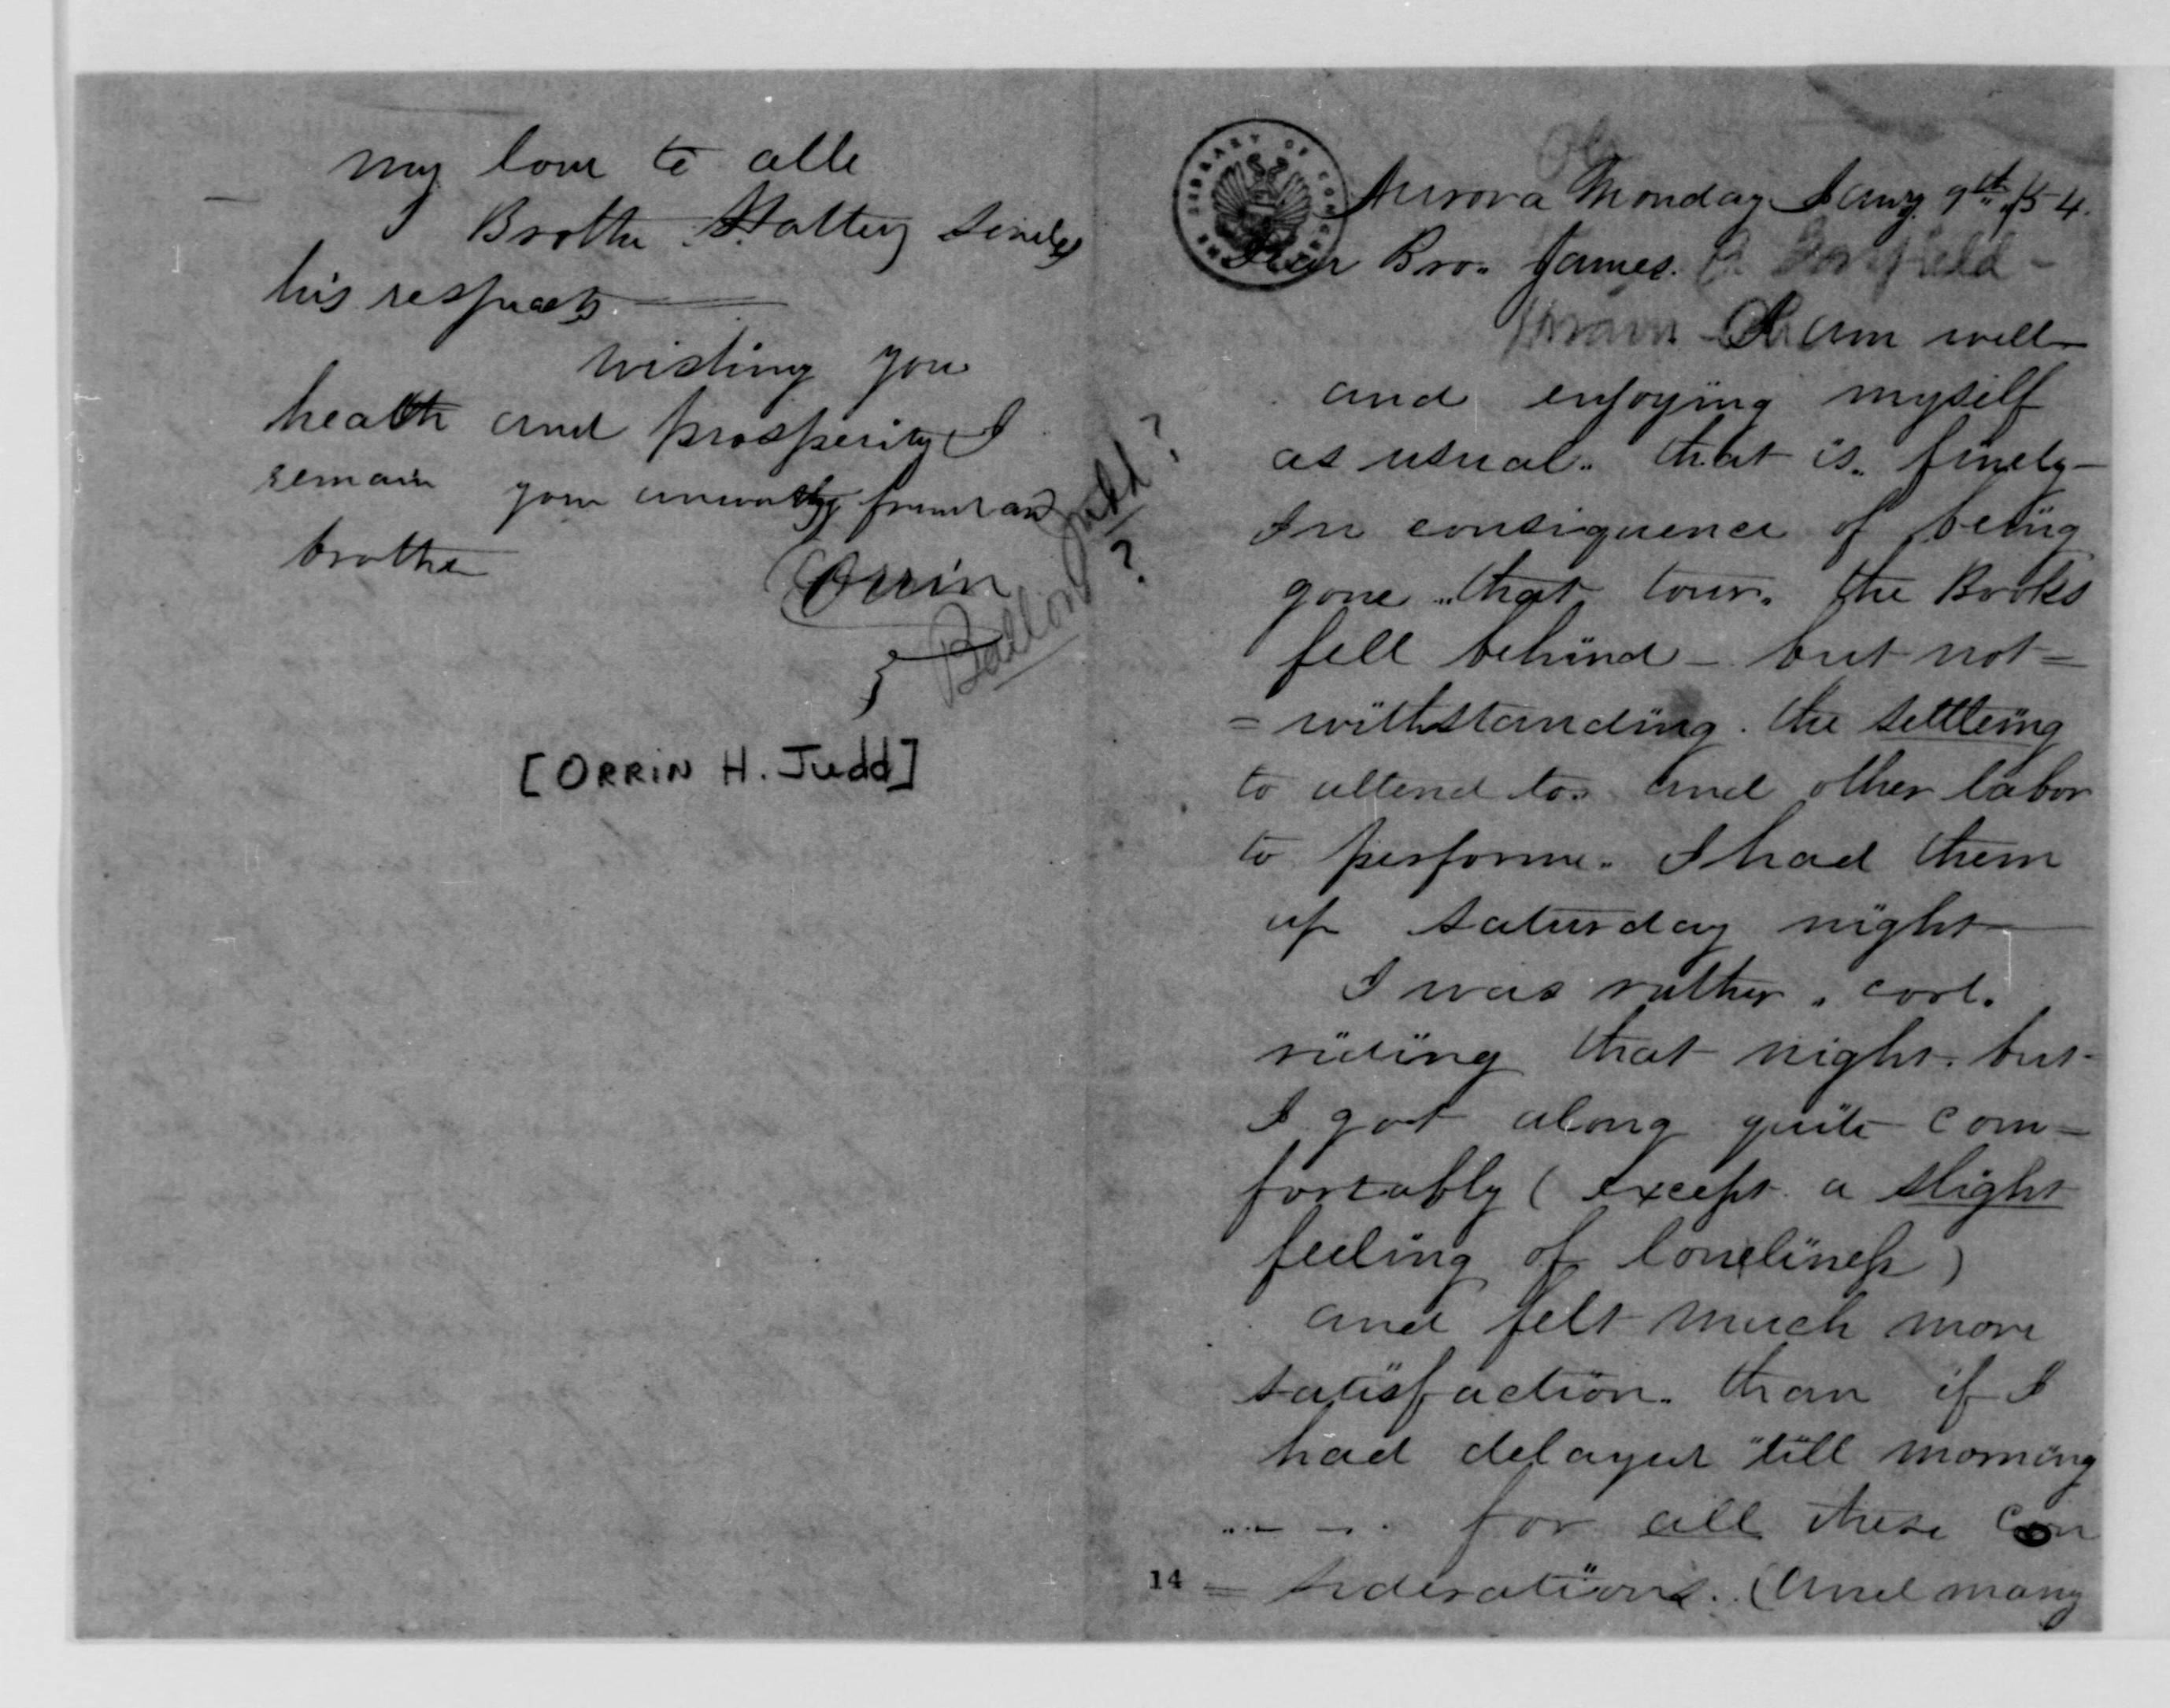 my love to alle
Brothe Hattery sends
his respects.
wishing you
health and prosperity I
remain your unworthy friend and
brother
Orrin
Ballou Judd?
?
[ORRIN H. Judd]
LIBRARY OF CONGRESS
O
Aurora Monday Jany. 9th /54.
Dear Bro. James. A Garfield -
Hiram O I am well
and enjoying myself
as usual. that is. finely -
In consequence of being
gone "that tour. the Books
fell behind - but not =
= withstanding. the settleing
to attend to. and other labor
to performe. I had them
up saturday night
I was rather " cool.
riding that night. but
I got along quite com =
fortably ( except a slight
feeling of loneliness )
and felt much more
satisfaction. than if I
had delayed "till morning
for all these con
14 = siderations. (and many